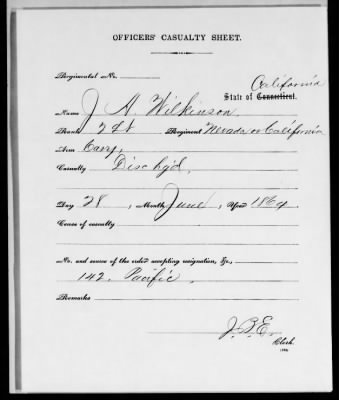 OFFICERS' CASUALTY SHEET.
Regimental No.
California
State of Connecticut.
Name J A. Wilkinson.
Rank 2 Lt Regiment Nevada or California
Arm Cavy,
Casualty Dischg'd,
Day 28, Month June, Year 1864
Cause of casualty
No. and source of the order accepting resignation, &c.,
142. Pacific.
Remarks
J. B. E.
Clerk.